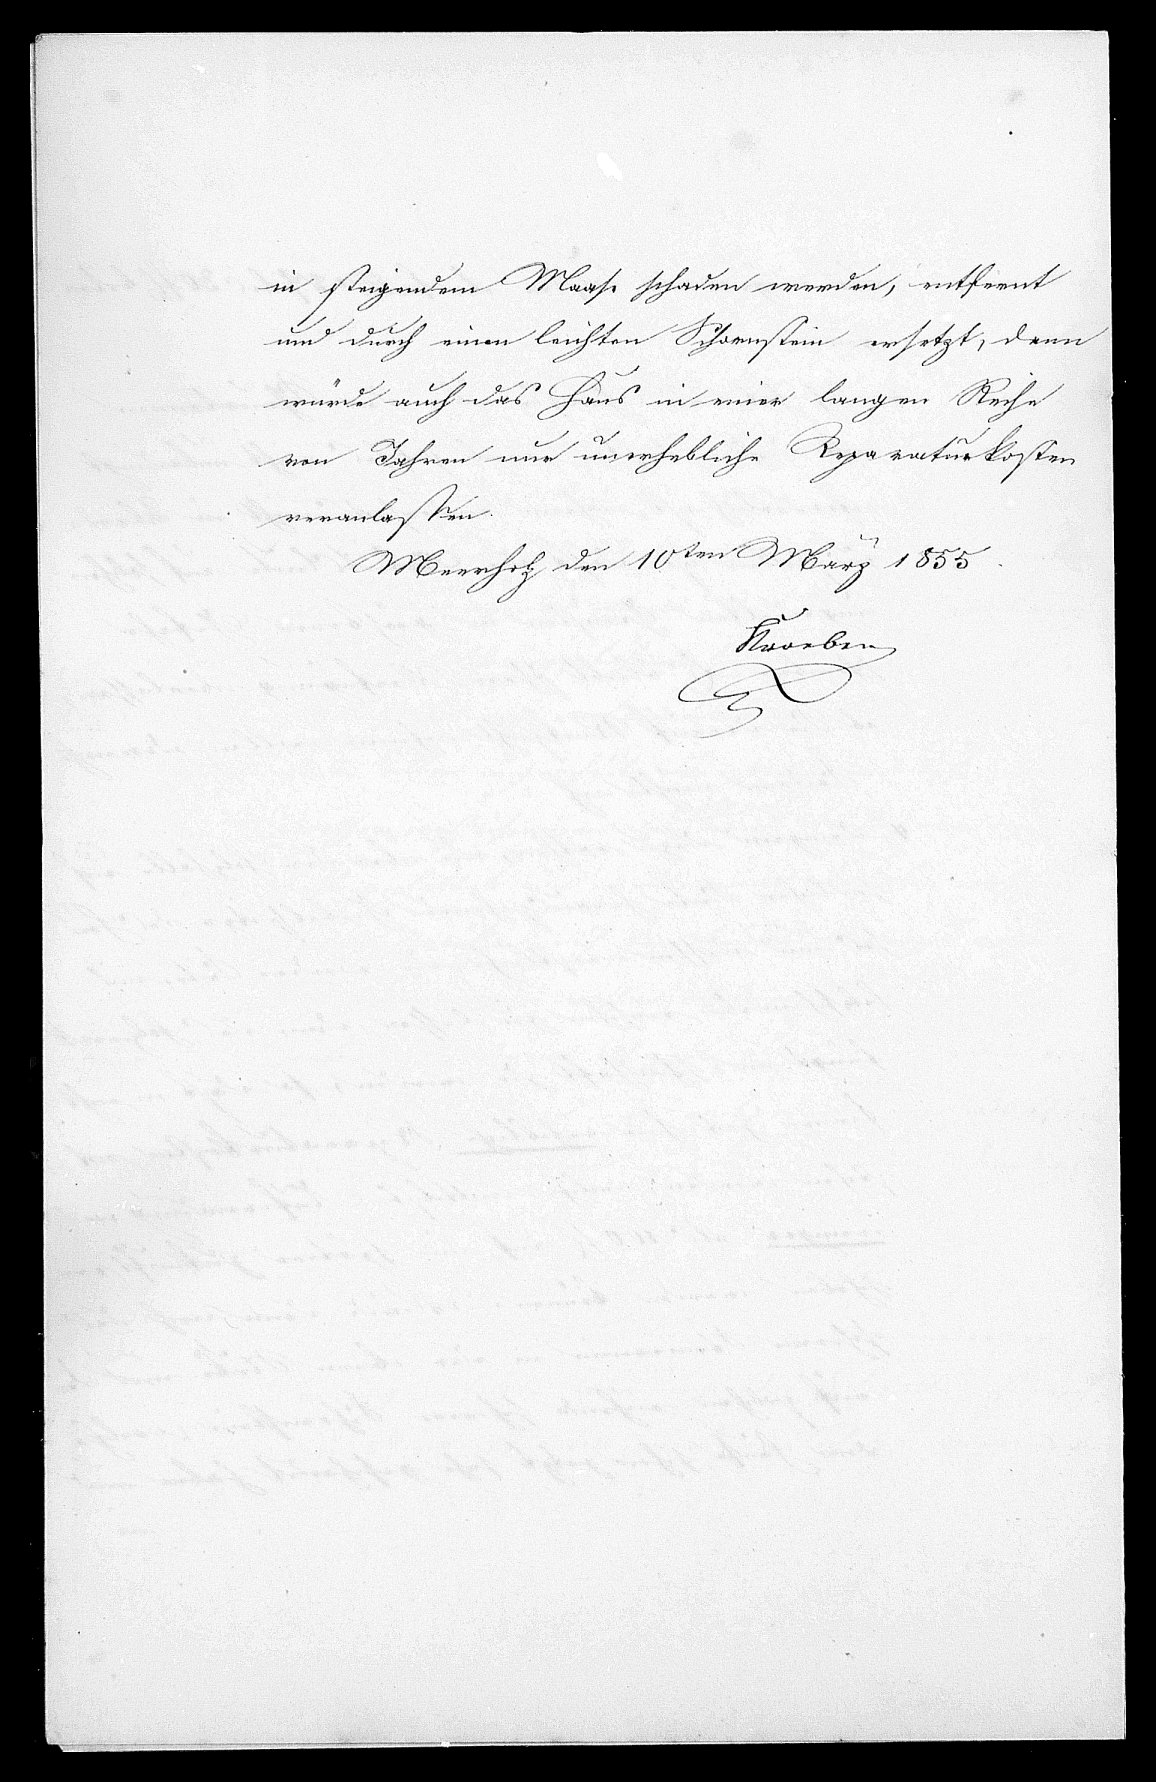 in steigendem Maase schaden werden, entfernt
und durch einen leichten Schornstein ersetzt, dann
würde auch das Haus in einer langen Reihe
von Jahren nur unerhebliche Reparaturkosten
veranlassen.
Meerholz den 10ten März 1855.
Kroeber